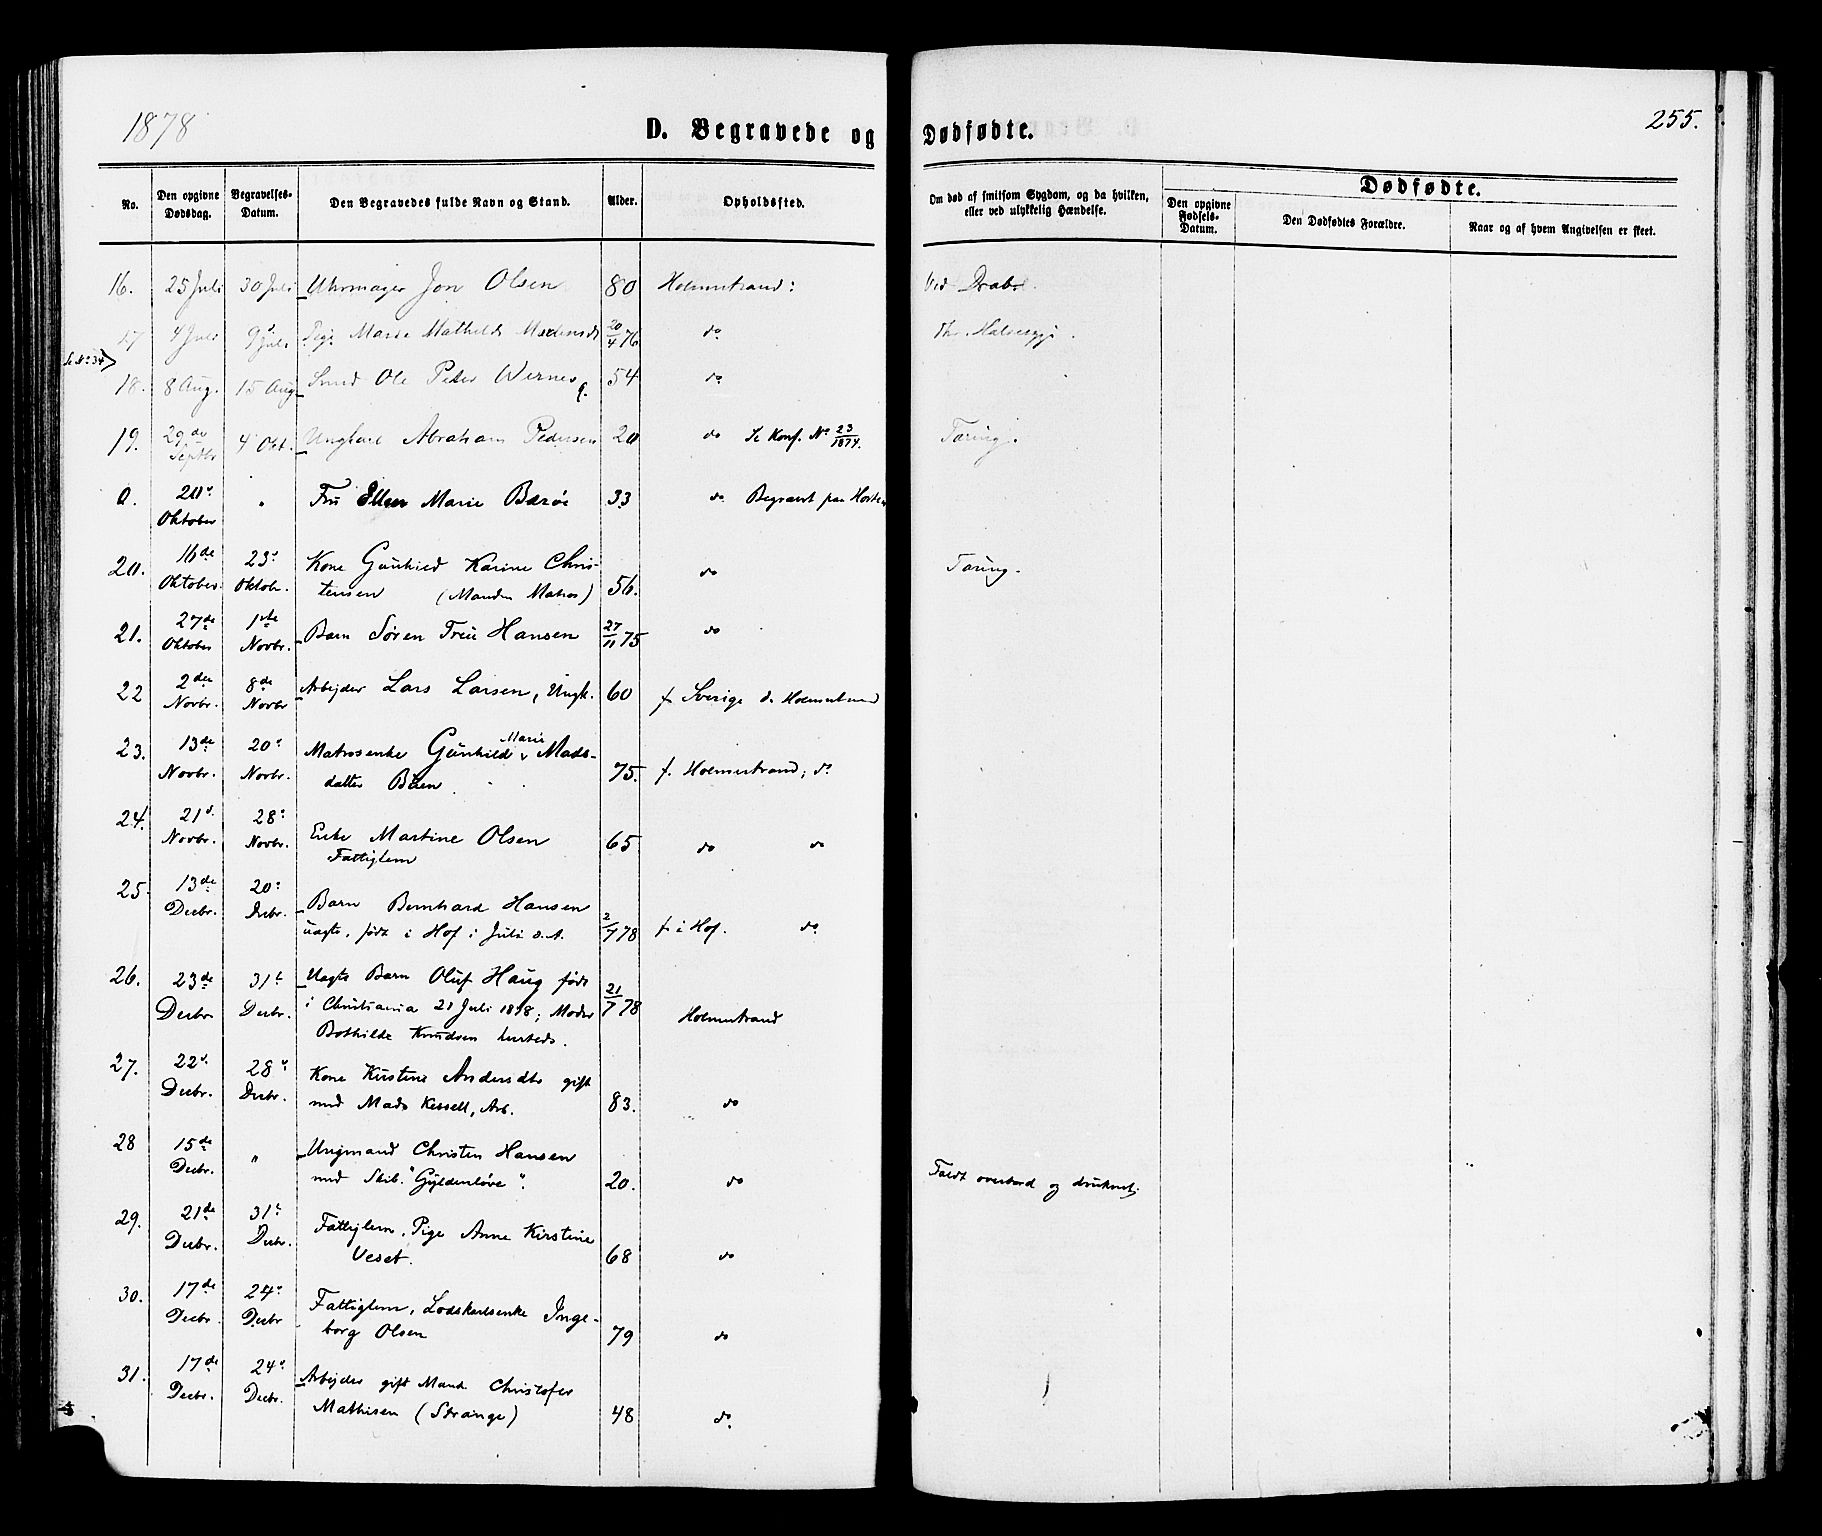 1878
D. Begravede og Dødfødte.
255.
No.
Den opgivne Dødsdag.
Begravelses-Datum.
Den Begravedes fulde Navn og Stand.
Alder.
Opholdssted.
Om død af smitsom Sygdom, og da hvilken, eller ved ulykkelig Hændelse.
Dødfødte.
Den opgivne Fødsels-Datum.
Den Dødfødtes Forældre.
Naar og af hvem Angivelsen er skeet.
16. 25 Juli 30 Juli Uhrmager Jon Olsen 80 Holmestrand: Ved
17 4 Juli 9 Juli Pige Marie Mathilde 20/4 76 do
Se No 34
18. 8 Aug. 15 Aug Smed Ole Peter Wernes 54 do
19. 29de Septbr 4 Okt. Ungkarl Abraham Pedersen 20 do Se Konf. No 23/1874. Tæring.
0. 20de Oktober " Fru Ellen Marie Barøe 33 do Begravet paa Horten
20. 16de Oktober 23de Oktobr. Kone Gunhild Karine Chris-
tensen (Manden Matros) 56. do Tæring.
21. 27de Oktober 1ste Novbr. Barn Søren Treu Hansen 27/11 75 do
22 2den Novbr. 8de Novbr Arbejder Lars Larsen, Ungk. 60 f. Sverige d. Holmestrand
23. 13de Novbr. 20de Novbr. Matrosenke Gunhild Marie Mads-
datter Bøen. 75. f. Holmestrand; do
24. 21de Novbr. 28de Novbr. Enke Martine Olsen 65 do do
Fattiglem
25. 13de Decbr. 20de Decbr. Barn Bernhard Hansen
uægte, født i Hof i Juli d. A. 2/7 78 f. i Hof. do
26. 23de Decbr 31te Decbr. Uægte Barn Oluf Haug født
i Christiania 21 Juli 1878; Moder 21/7 78 Holmestrand
Bothilde Knudsen hersteds.
27. 22de Decbr. 28de Decbr. Kone Kirstine Andersdtr gift
med Mads Kessell, Arb. 83. do
28 15de Decbr. " Ungmand Christen Hansen
med Skib. "Gyldenløve". 20. do Faldt overbord og druknet.
29. 21de Decbr. 31te Decbr. Fattiglem, Pige Anne Kirstine
Veset. 68 do
30. 17de Decbr 24de Decbr Fattiglem, Lodskarlsenke Inge-
borg Olsen 79 do
31. 17de Decbr. 24de Decbr. Arbejder gift Mand Christofer
Mathisen (Strange) 48 do